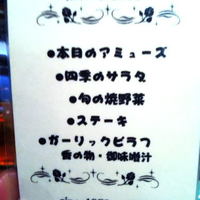 ●本日のアミューズ
●四季のサラダ
●旬の焼野菜
●ステーキ
●ガーリックピラフ
香の物・御味噌汁